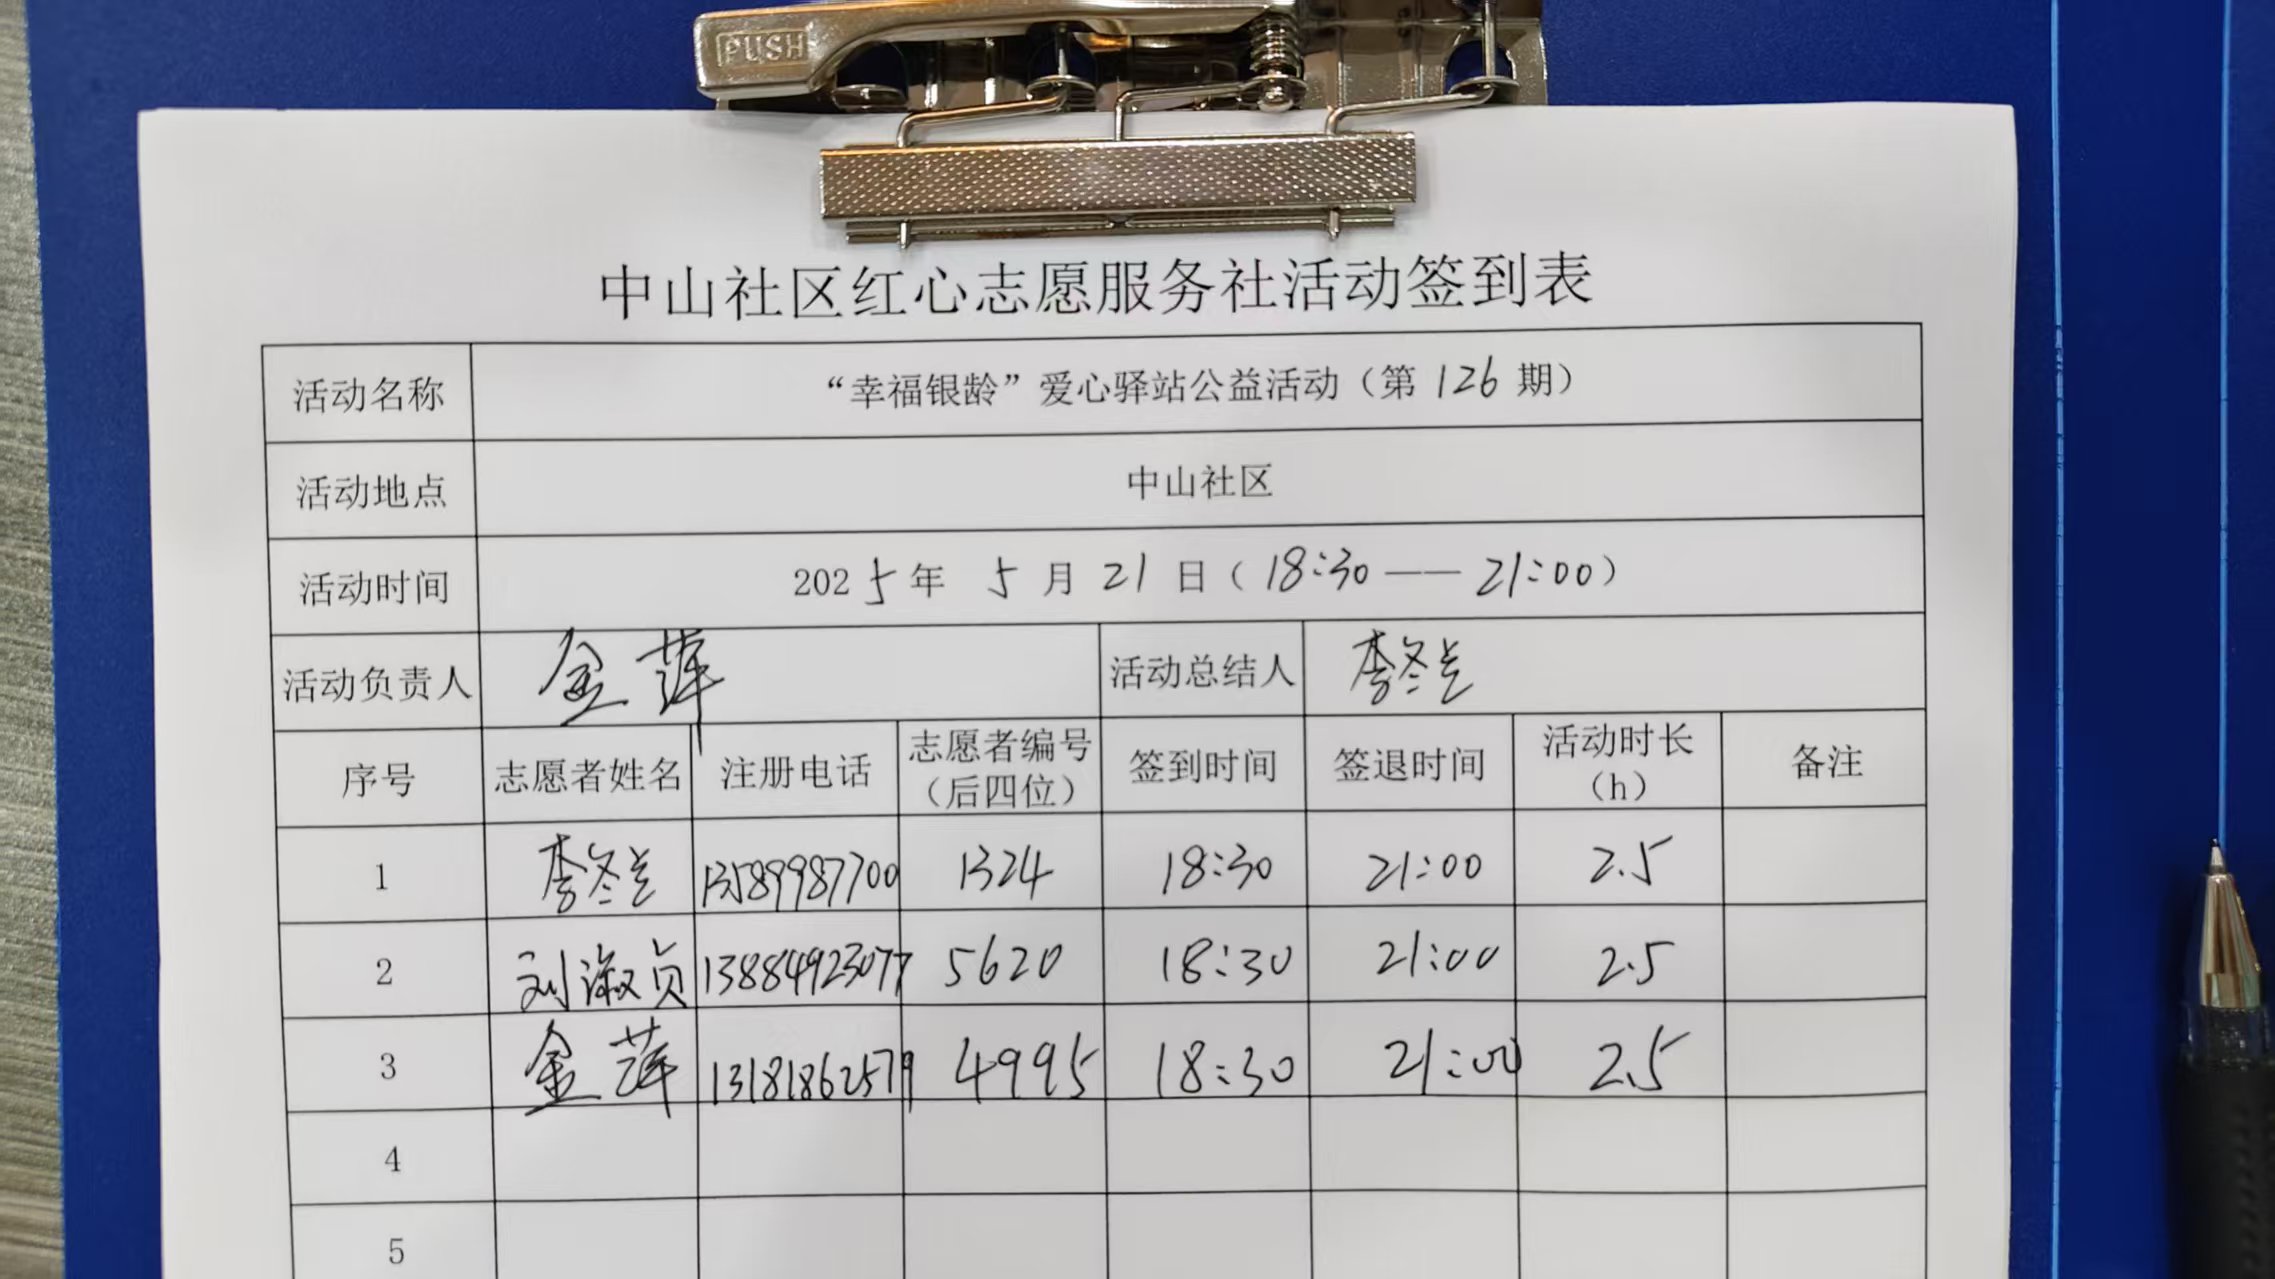 PUSH
中山社区红心志愿服务社活动签到表
活动名称 “幸福银龄”爱心驿站公益活动（第 126 期）
活动地点 中山社区
活动时间 2025年 5 月 21 日（18:30——21:00）
活动负责人 金萍 活动总结人 李冬兰
序号 志愿者姓名 注册电话 志愿者编号（后四位） 签到时间 签退时间 活动时长（h） 备注
1 李冬兰 13589987700 1324 18:30 21:00 2.5
2 刘淑贞 13884923077 5620 18:30 21:00 2.5
3 金萍 13181862579 4995 18:30 21:00 2.5
4
5